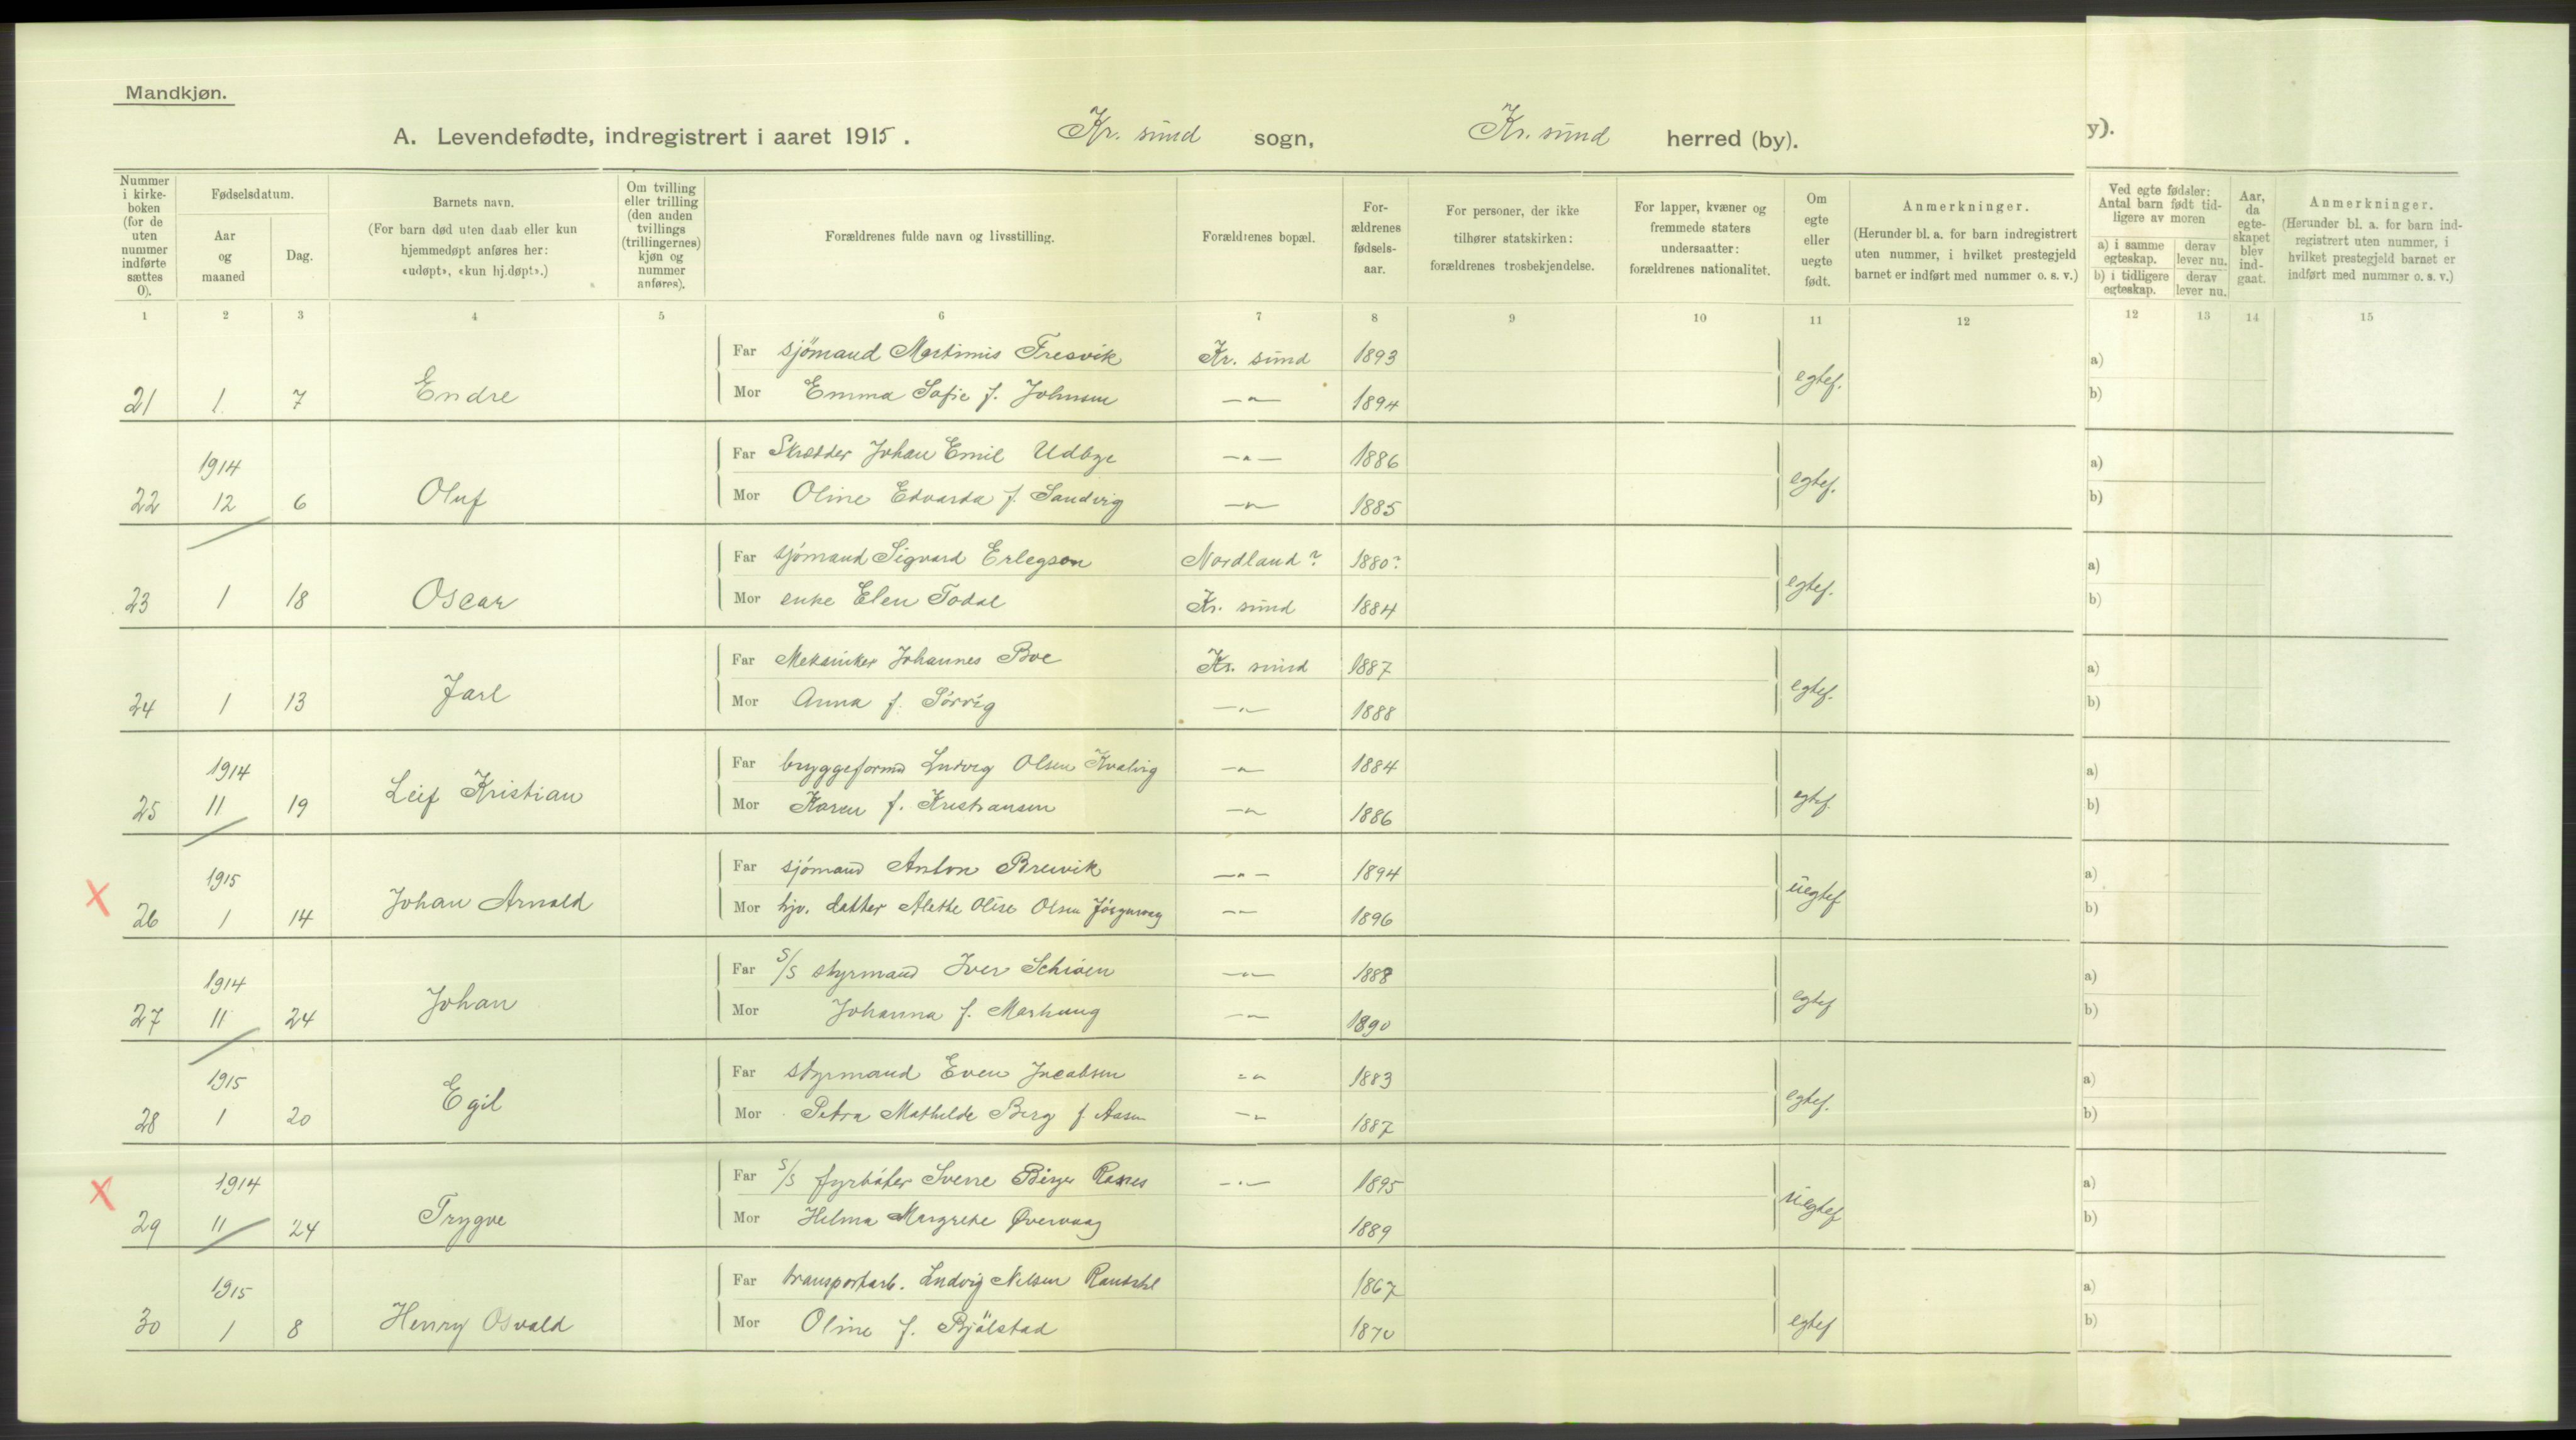 Mandkjøn.
A. Levendefødte, indregistrert i aaret 1915. Kr. sund sogn, Kr. sund herred (by).
y).
Nummer i kirke-boken (for de uten nummer indførte sættes 0).
Fødselsdatum.
Aar og maaned
Dag.
Barnets navn.
(For barn død uten daab eller kun hjemmedøpt anføres her: «udøpt», «kun hj.døpt».)
Om tvilling eller trilling (den anden tvillings (trillingernes) kjøn og nummer anføres).
Forældrenes fulde navn og livsstilling.
Forældrenes bopæl.
For-ældrenes fødsels-aar.
For personer, der ikke tilhører statskirken: forældrenes trosbekjendelse.
For lapper, kvæner og fremmede staters undersaatter: forældrenes nationalitet.
Om egte eller uegte født.
Anmerkninger.
(Herunder bl. a. for barn indregistrert uten nummer, i hvilket prestegjeld barnet er indført med nummer o. s. v.)
Ved egte fødsler: Antal barn født tid-ligere av moren
a) i samme egteskap. derav lever nu.
b) i tidligere egteskap. derav lever nu.
Aar, da egte-skapet blev ind-gaat.
Anmerkninger.
(Herunder bl. a. for barn ind-registrert uten nummer, i hvilket prestegjeld barnet er indført med nummer o. s. v.)
1 2 3 4 5 6 7 8 9 10 11 12 12 13 14 15
Far sjömand Martinius Fresvik Kr. sund 1893 a)
21 1. 7 Endre Mor Emma Sofie f. Johnsen —"— 1894 egtef. b)
1914 Far Skrædder Johan Emil Udbye —"— 1886 a)
22 12 6 Oluf Mor Oline Edvarda f. Sandvig —"— 1885 egtef. b)
Far sjömand Sigvard Erlegson Nordland? 1880? a)
23 1 18 Oscar Mor enke Elen Todal Kr. sund 1884 egtef. b)
Far Mekaniker Johannes Boe Kr. sund 1887 a)
24 1 13 Jarl Mor Anna f. Sörvig —"— 1888 egtef. b)
1914 Far bryggeformd Ludvig Olsen Kvalvig —"— 1884 a)
25 11 19 Leif Kristian Mor Karen f. Kristiansen —"— 1886 egtef. b)
1915 Far sjömand Anton Breivik —"— 1894 a)
X 26 1 14 Johan Arnold Mor hjv. datter Alethe Olise Olsen —"— 1896 uegtef b)
1914 Far S/S styrmand Iver —"— 1888 a)
27 11 24 Johan Mor Johanna f. Marhaug —"— 1890 egtef b)
1915 Far styrmand Even Jacobsen —"— 1883 a)
28 1 20 Egil Mor Petra Mathilde Berg f. Aasen —"— 1887 egtef. b)
1914 Far S/S fyrböter Sverre Birger —"— 1895 a)
X 29 11 24 Trygve Mor Helma Margrete Øvervaag 1889 uegtef b)
1915 Far transportarb. Ludvig Nilsen 1867 a)
30 1 8 Henry Osvald Mor Oline f. Bjölstad 1870 egtef b)